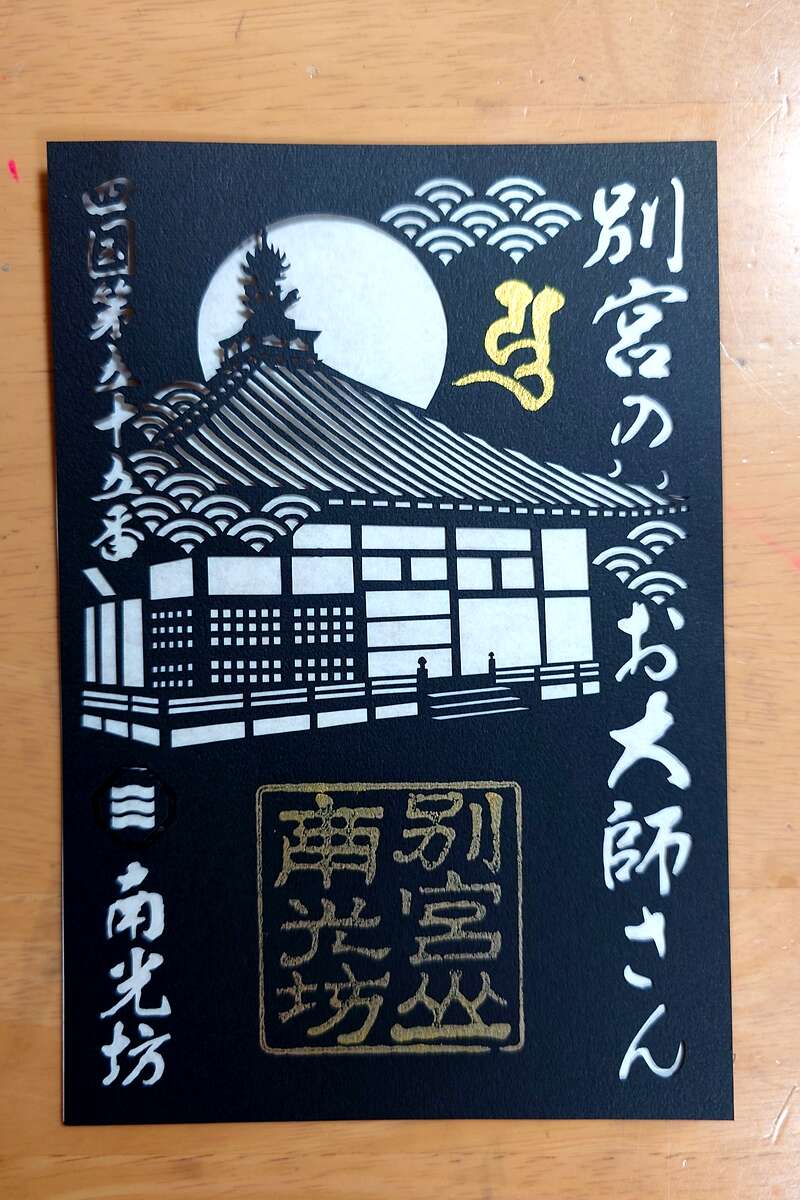 別宮のお大師さん
四国第五十五番
南光坊
別宮山
南光坊